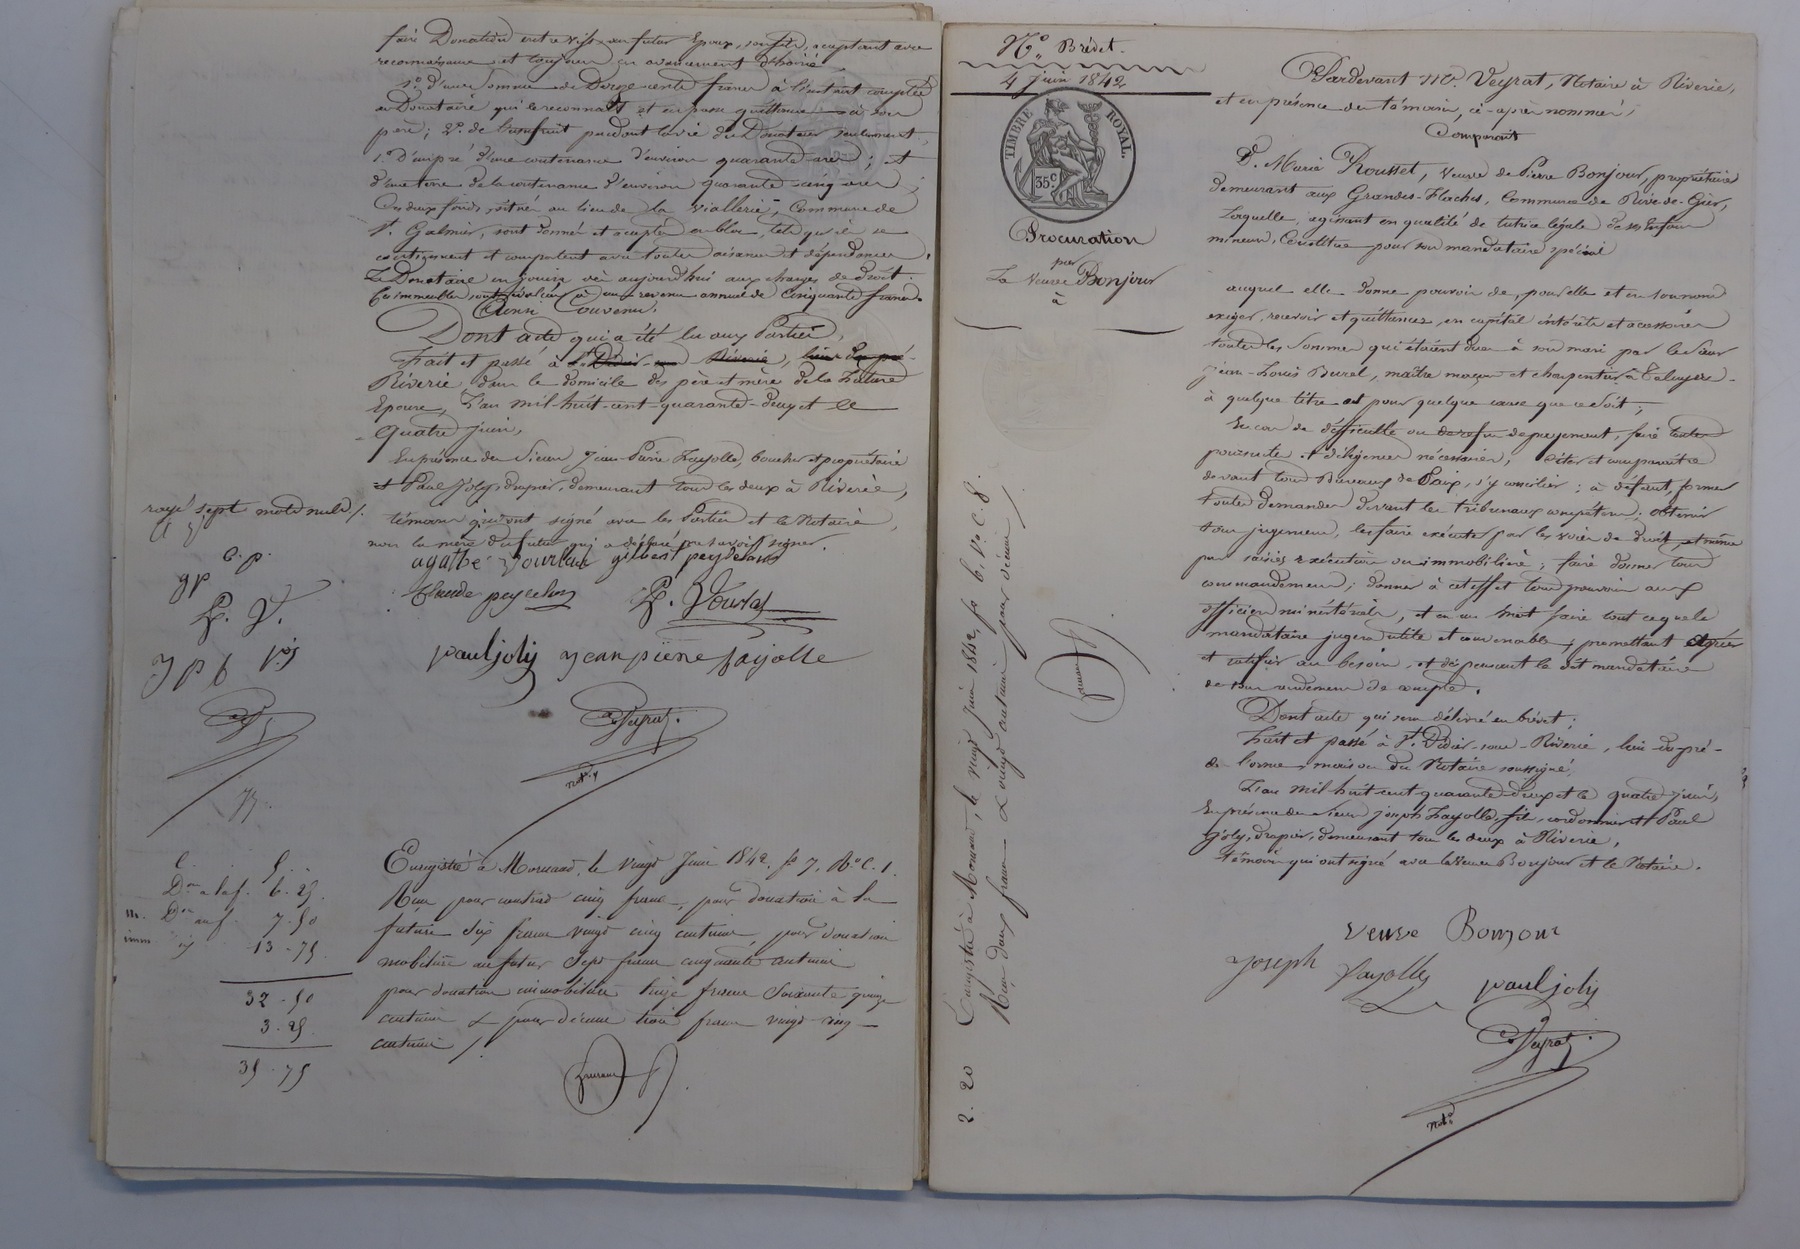 faire Donation entre vifs au futur Epoux, son fils, acceptant avec
reconnaissance et toujours en avancement d'hoirie
1.° d'une somme de Douze cents francs à l'instant comptée
au Donataire qui le reconnaît et en passe quittance à son
père; 2.° de l'usufruit pendant la vie du Donateur seulement,
1. D'un pré d'une contenance d'environ quarante ares; et
d'une terre de la contenance d'environ quarante cinq ares;
Ces deux fonds, situés au lieu de la Viallerie, Commune de
St. Galmier, sont donnés et acceptés en bloc, tels qu'ils se
contiennent et comportent avec toutes aisances et dépendances.
Le Donataire en jouira dès aujourd'hui aux charges de droit.
Ces immeubles sont évalués à un revenu annuel de Cinquante francs.
Ainsi Convenu.
Dont acte qui a été lu aux Parties,
Fait et passé à St. Didier-sous-Riverie, lieu du pré-
Riverie dans le domicile des père et mère de la Future
Epouse, L'an mil-huit-cent-quarante-deux et le
Quatre juin,
En présence des Sieurs Jean-Pierre Fayolle, boucher et propriétaire
et Paul Joly, drapier, demeurant tous les deux à Riverie,
témoins qui ont signé avec les Parties et le Notaire,
non la mère du futur qui a déclaré ne savoir signer.
rayé sept mots nuls
agathe Vourlat gilbert peydesans
C. p.
gp
P. V.
Claude P. Vourlat
J P f P J
paul joly jean pierre fayolle
Veyrat
Not.
Enregistré à Mornand, le vingt Juin 1842. f° 7, R° C. 1.
Reçu pour contrat cinq francs, pour donation à la
future Six francs vingt cinq centimes, pour donation
mobilière au futur Sept francs cinquante centimes
pour donation immobilière treize francs soixante quinze
centimes & pour décime trois francs vingt-cinq
centimes
6. 25
7. 50
imm 13 - 75
32 - 50
3. 25
35 - 75
N.° Brévet.
4 juin 1842
TIMBRE ROYAL.
35 c.
Procuration
par
La Veuve Bonjour
à
Pardevant M.e Veyrat, Notaire à Riverie,
et en présence des témoins, ci-après nommés,
Comparaît
D. Marie Rousset, Veuve de Pierre Bonjour, propriétaire
demeurant aux Grandes-Flaches, Commune de Rive-de-Gier,
Laquelle, agissant en qualité de tutrice légale de ses Enfans
mineurs, Constitue pour son mandataire spécial
auquel elle donne pouvoir de, pour elle et en son nom
exiger, recevoir et quittancer, en capital intérêts et accessoires
toutes les Sommes qui étaient dues à son mari par le Sieur
Jean-Louis Burel, maître maçon et charpentier à Taluyers-
à quelque titre et pour quelque cause que ce soit;
En cas de difficulté ou de refus de payement, faire toutes
poursuites et diligences nécessaires; citer et comparaître
devant tous Bureaux de Paix, s'y concilier; à défaut, former
toutes demandes devant les tribunaux compétens; obtenir
tous jugemens, les faire exécuter par les voies de droit et même
par saisies exécution ou immobilière; faire donner tous
commandemens; donner à cet effet tous pouvoirs aux
officiers ministériels, et en un mot faire tout ce que le
mandataire jugera utile et convenable; promettant agréer
et ratifier au besoin, et dispensant le dit mandataire
de tout rendement de compte.
Dont acte qui sera délivré en brévet;
Fait et passé à St. Didier-sous-Riverie, lieu-du-pré-
de l'orme, maison du Notaire soussigné,
L'an mil-huit-cent-quarante-deux et le quatre juin,
En présence des Sieurs joseph Fayolle fils, cordonnier et Paul
Joly, drapier, demeurant tous les deux à Riverie,
témoins qui ont signé avec la Veuve Bonjour et le Notaire.
veuve Bonjour
joseph fayolle paul joly
Veyrat
Not.
2. 20 Enregistré à Mornand, le vingt juin 1842, f° 6, V° C. 8.
Reçu deux francs & vingt centimes pour décime